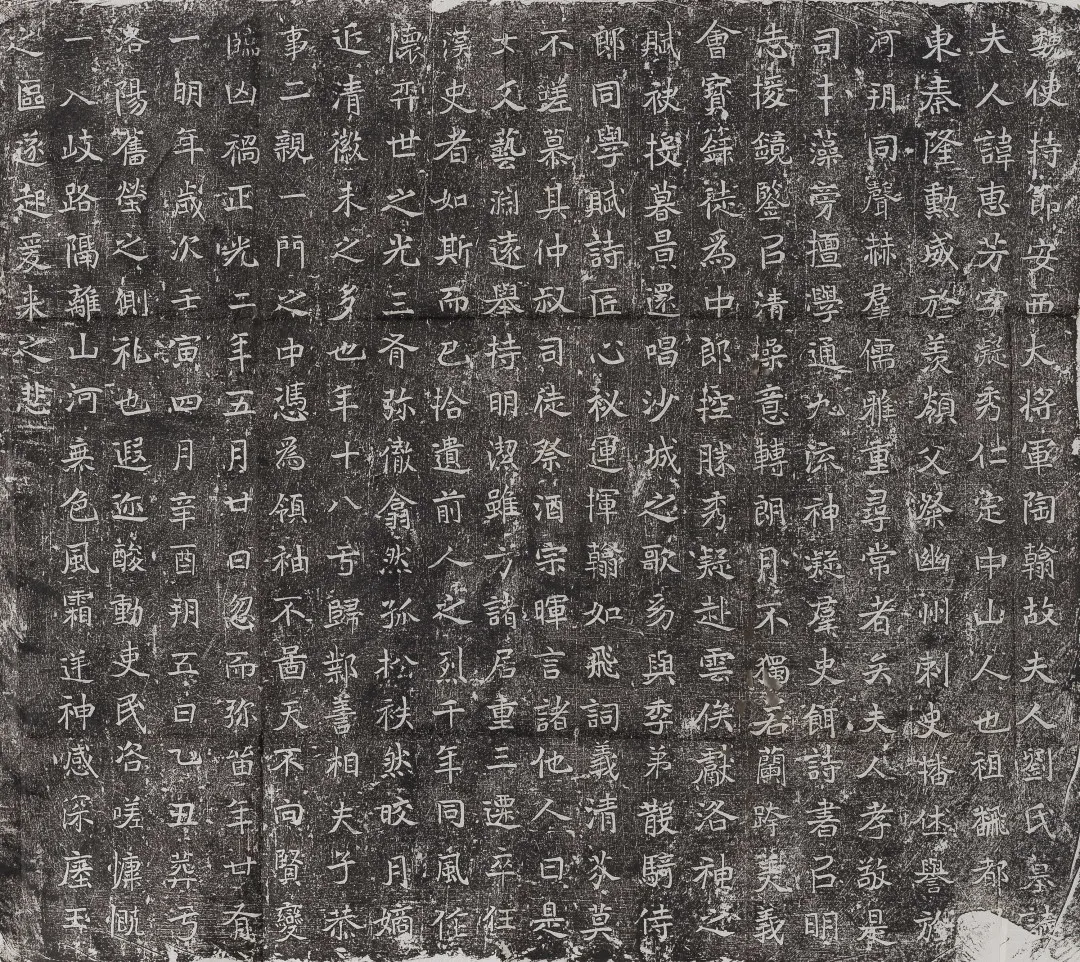 魏使持節安西大將軍陶翰故夫人劉氏墓誌
夫人諱惠芳字凝秀仁定中山人也祖 都
東秦隆勳威於羡領父粲幽州刺史播休譽於
河玥同聲赫羣儒雅重尋常者矣夫人孝敬是
司才藻旁擅學通九流神凝羣史飾詩書㠯明
志援鏡鑒㠯清操意轉朗月不獨若蘭跨美義
會寶籙徒為中郎控勝秀凝赴雲俟獻洛神之
賦袂授暮景還唱沙城之歌矣與季弟散騎侍
郎同學賦詩匠心秘運揮翰如飛詞義清芬莫
不蹉慕其仲叔司徒祭酒宗暉言諸他人曰是
女文藝淵遠舉持明潔雖方諸居重三遷卒狂
漢史者如斯而已拾遺前人之烈千年同風任
懷弈世之光三脊弥徹翕然孤松秩然皎月嫡
近清徽未之多也年十八亏歸鄴善相夫子恭
事二親一門之中憑為領袖不啚天不向賢變
臨凶禍正光二年五月廿日忽而弥留年廿有
一明年歲次壬寅四月辛酉玥五日乙丑葬亏
洛陽舊塋之側礼也遐迩酸動吏民咨嗟慷慨
一入岐路隔離山河無色風霜送神感深塵玉
之區遂起爰来之悲